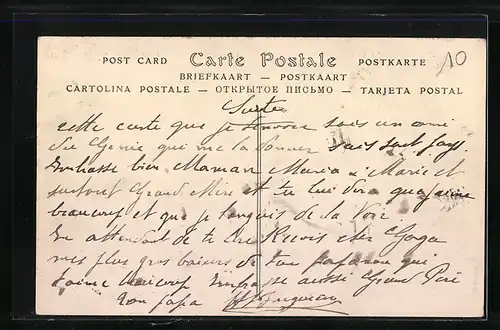 POST CARD Carte Postale POSTKARTE 10
BRIEFKAART — POSTKAART
CARTOLINA POSTALE — ОТКРЫТОЕ ПИСЬМО — TARJETA POSTAL
Suite
cette carte que je t'envoie un ami
du Genie qui me la donner
Embrasse bien Maman Maria Marie et
surtout Grand Mère et tu lui dira que j'aime
beaucoup et que je languis de la voir
En attendant de te lire Reçois cher Gaga
mes plus gros baisers de ton qui
t'aime beaucoup Embrasse aussi Grand Père
Ton papa